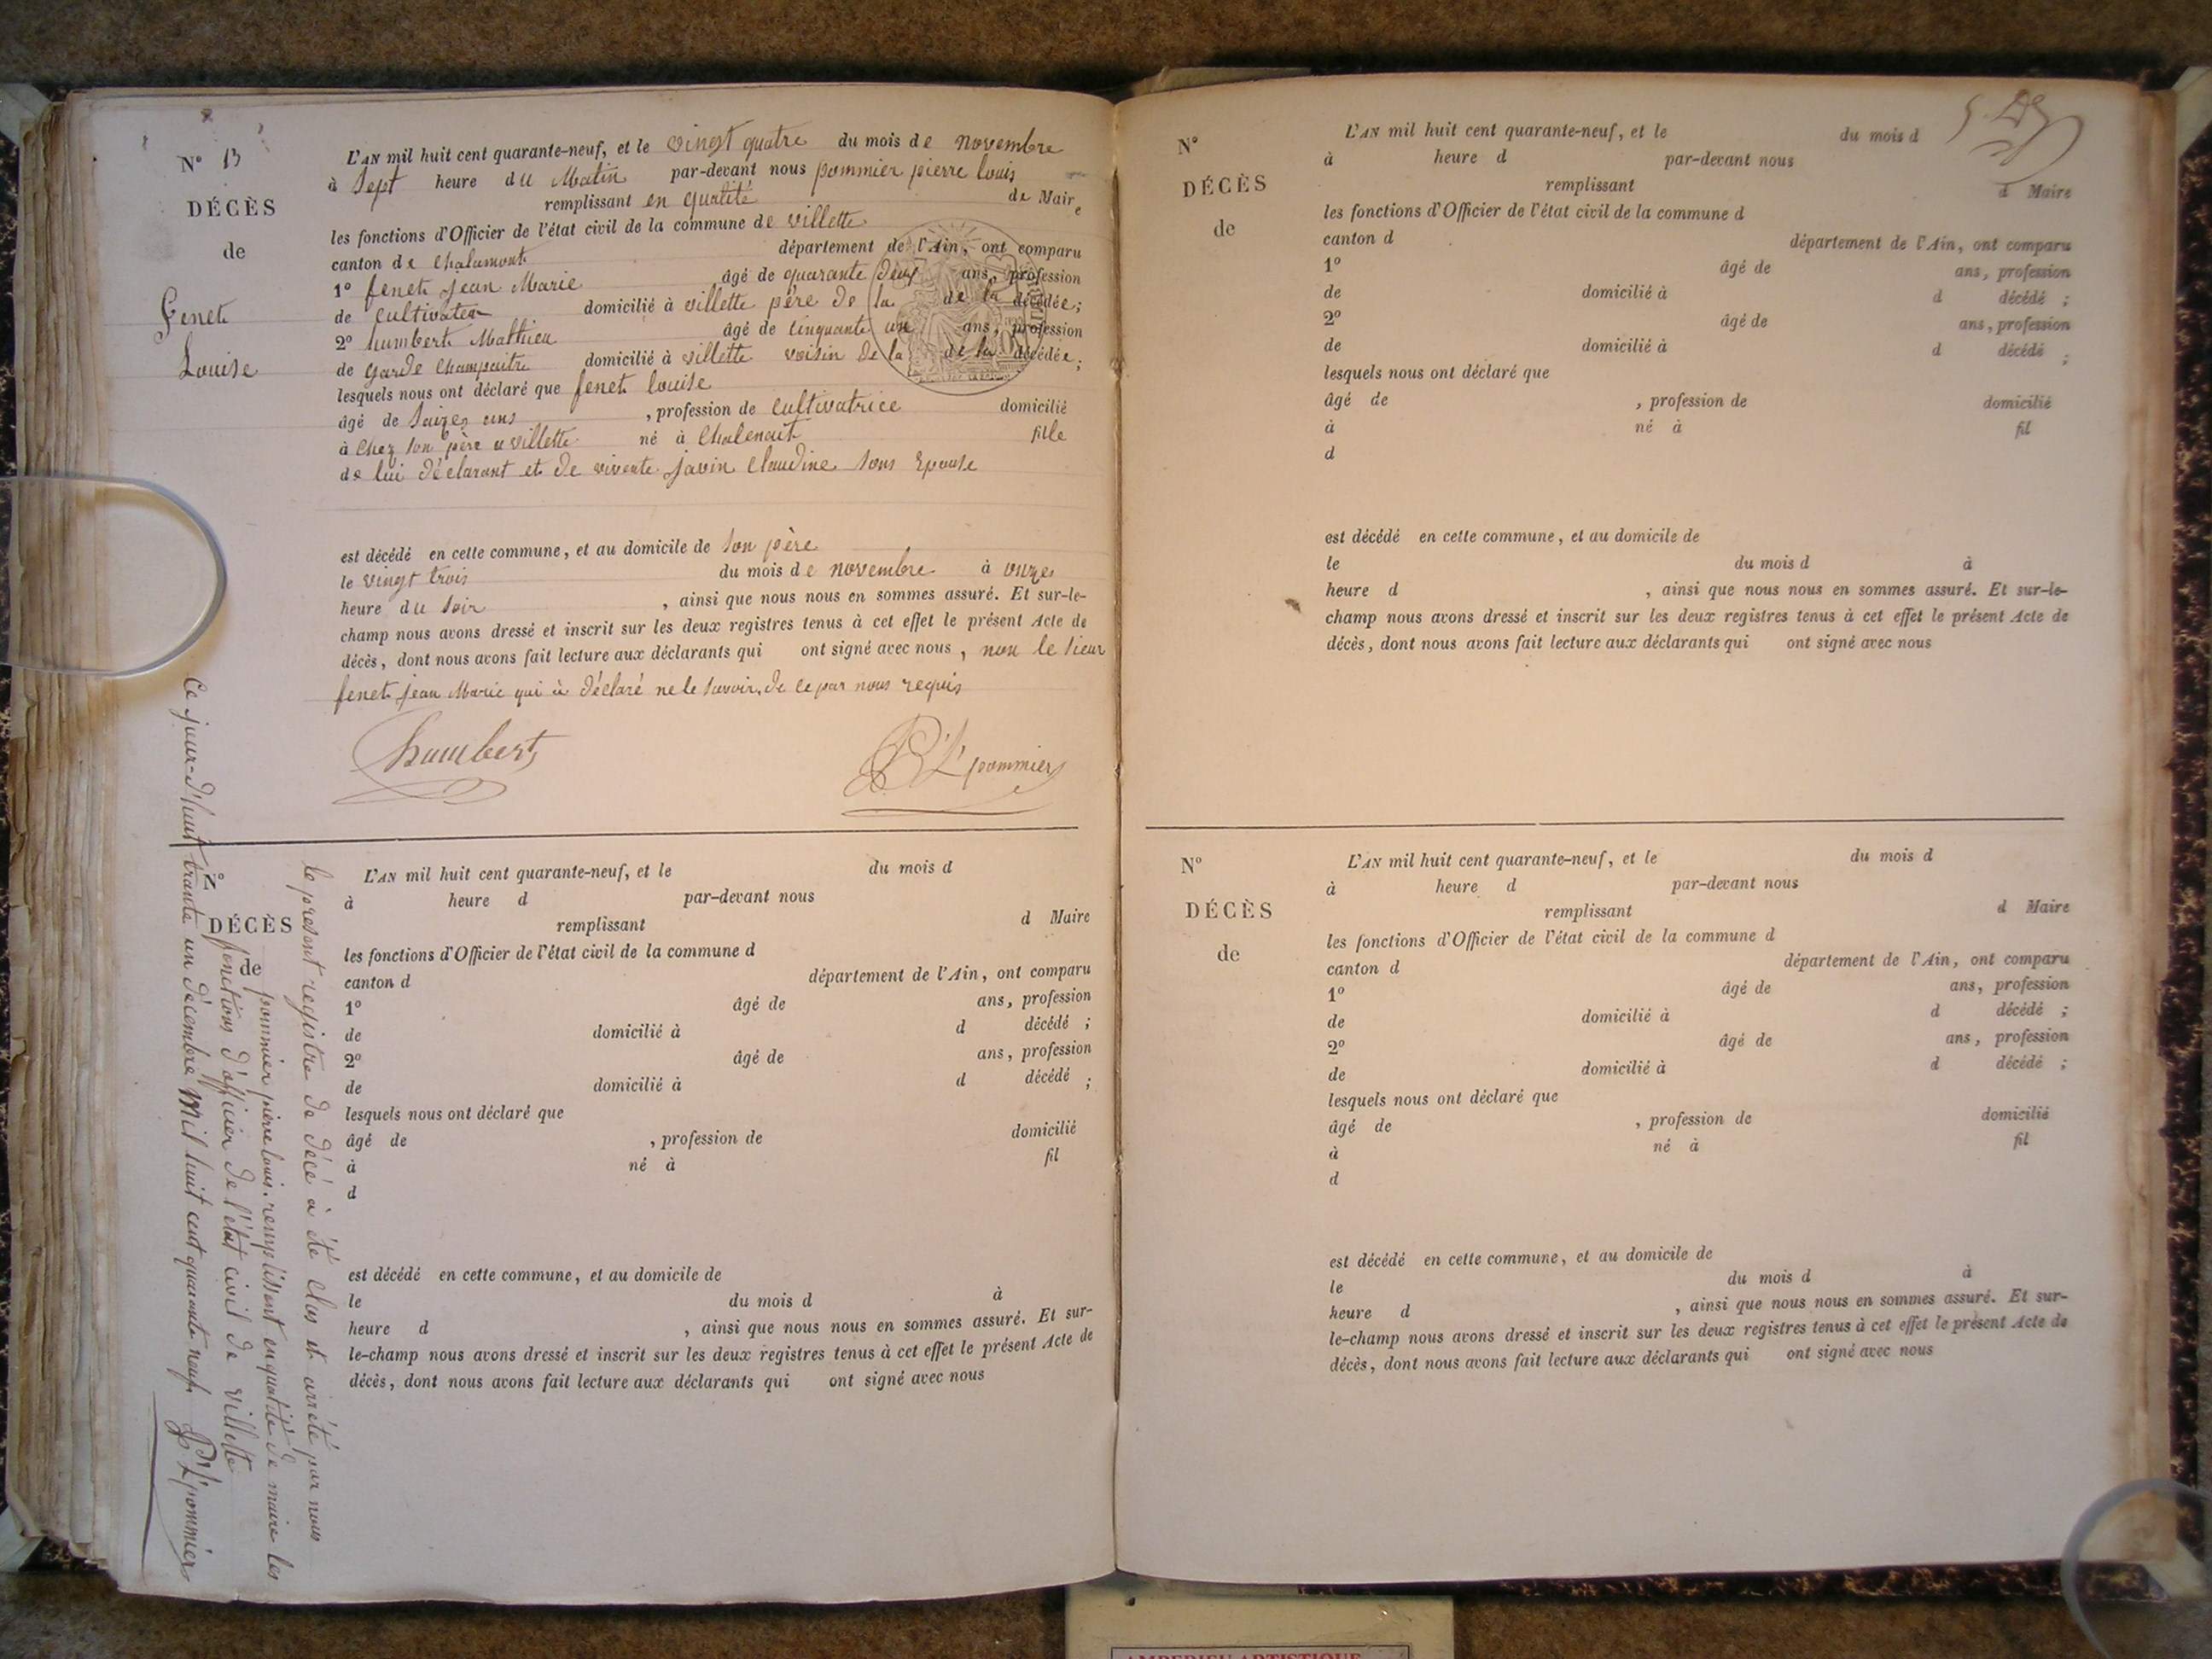 N° 13
DÉCÈS
de
Fenet
Louise
L'AN mil huit cent quarante-neuf, et le vingt quatre du mois de novembre
à Sept heure du Matin par-devant nous pommier pierre louis
remplissant en qualité de Maire
les fonctions d'Officier de l'état civil de la commune de villette
canton de chalamont département de l'Ain, ont comparu
1° fenet jean Marie âgé de quarante deux ans, profession
de cultivateur domicilié à villette père de la de la décédée;
2° humbert Mathieu âgé de cinquante un ans, profession
de garde champaitre domicilié à villette voisin de la de la décédée;
lesquels nous ont déclaré que fenet louise
âgé de Saize ans, profession de cultivatrice domicilié
à chez son père a villette né à Chalenait fille
de lui déclarant et de vivente javin claudine sons Epouse
est décédé en cette commune, et au domicile de son père
le vingt trois du mois de novembre à onzes
heure du soir, ainsi que nous nous en sommes assuré. Et sur-le-
champ nous avons dressé et inscrit sur les deux registres tenus à cet effet le présent Acte de
décès, dont nous avons fait lecture aux déclarants qui ont signé avec nous, non le sieur
fenet jean Marie qui à déclaré ne le savoir, de ce par nous requis
humbert
P L pommier
N°
DÉCÈS
de
L'AN mil huit cent quarante-neuf, et le du mois d
à heure d par-devant nous
remplissant d Maire
les fonctions d'Officier de l'état civil de la commune d
canton d département de l'Ain, ont comparu
1° âgé de ans, profession
de domicilié à d décédé ;
2° âgé de ans, profession
de domicilié à d décédé ;
lesquels nous ont déclaré que
âgé de , profession de domicilié
à né à fil
d
est décédé en cette commune, et au domicile de
le du mois d à
heure d , ainsi que nous nous en sommes assuré. Et sur-
le-champ nous avons dressé et inscrit sur les deux registres tenus à cet effet le présent Acte de
décès, dont nous avons fait lecture aux déclarants qui ont signé avec nous
le présent registre de décé à été clos et arrété par nous
pommier pierre louis. remplissent en qualité de maire les
fonctions d'officier de l'état civil de villette
Ce jour-d'huit trante un décembre Mil huit cent quarante neuf. P L pommier
N°
DÉCÈS
de
L'AN mil huit cent quarante-neuf, et le du mois d
à heure d par-devant nous
remplissant d Maire
les fonctions d'Officier de l'état civil de la commune d
canton d département de l'Ain, ont comparu
1° âgé de ans, profession
de domicilié à d décédé ;
2° âgé de ans, profession
de domicilié à d décédé ;
lesquels nous ont déclaré que
âgé de , profession de domicilié
à né à fil
d
est décédé en cette commune, et au domicile de
le du mois d à
heure d , ainsi que nous nous en sommes assuré. Et sur-le-
champ nous avons dressé et inscrit sur les deux registres tenus à cet effet le présent Acte de
décès, dont nous avons fait lecture aux déclarants qui ont signé avec nous
N°
DÉCÈS
de
L'AN mil huit cent quarante-neuf, et le du mois d
à heure d par-devant nous
remplissant d Maire
les fonctions d'Officier de l'état civil de la commune d
canton d département de l'Ain, ont comparu
1° âgé de ans, profession
de domicilié à d décédé ;
2° âgé de ans, profession
de domicilié à d décédé ;
lesquels nous ont déclaré que
âgé de , profession de domicilié
à né à fil
d
est décédé en cette commune, et au domicile de
le du mois d à
heure d , ainsi que nous nous en sommes assuré. Et sur-
le-champ nous avons dressé et inscrit sur les deux registres tenus à cet effet le présent Acte de
décès, dont nous avons fait lecture aux déclarants qui ont signé avec nous